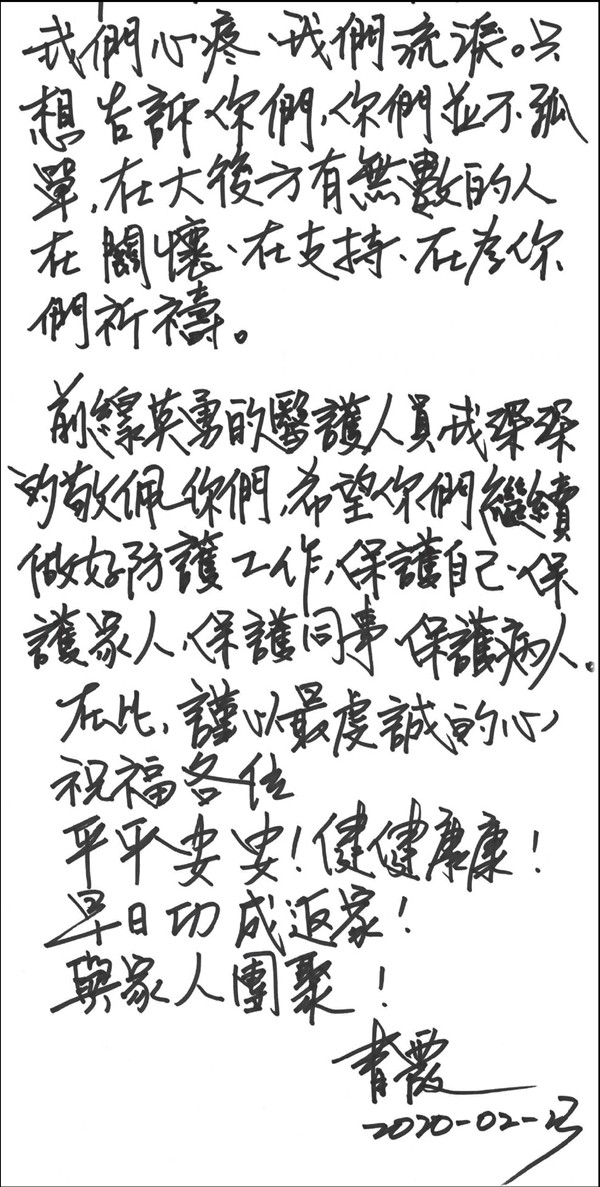 我們心疼、我們流淚。只
想告訴你們,你們並不孤
單,在大後方有無數的人
在關懷、在支持、在為你
們祈禱。
前線英勇的醫護人員我深深
的敬佩你們,希望你們繼續
做好防護工作,保護自己、保
護家人、保護同事 保護病人.
在此,謹以最虔誠的心
祝福各位
平平安安!健健康康!
早日功成返家!
與家人團聚!
青霞
2020-02-